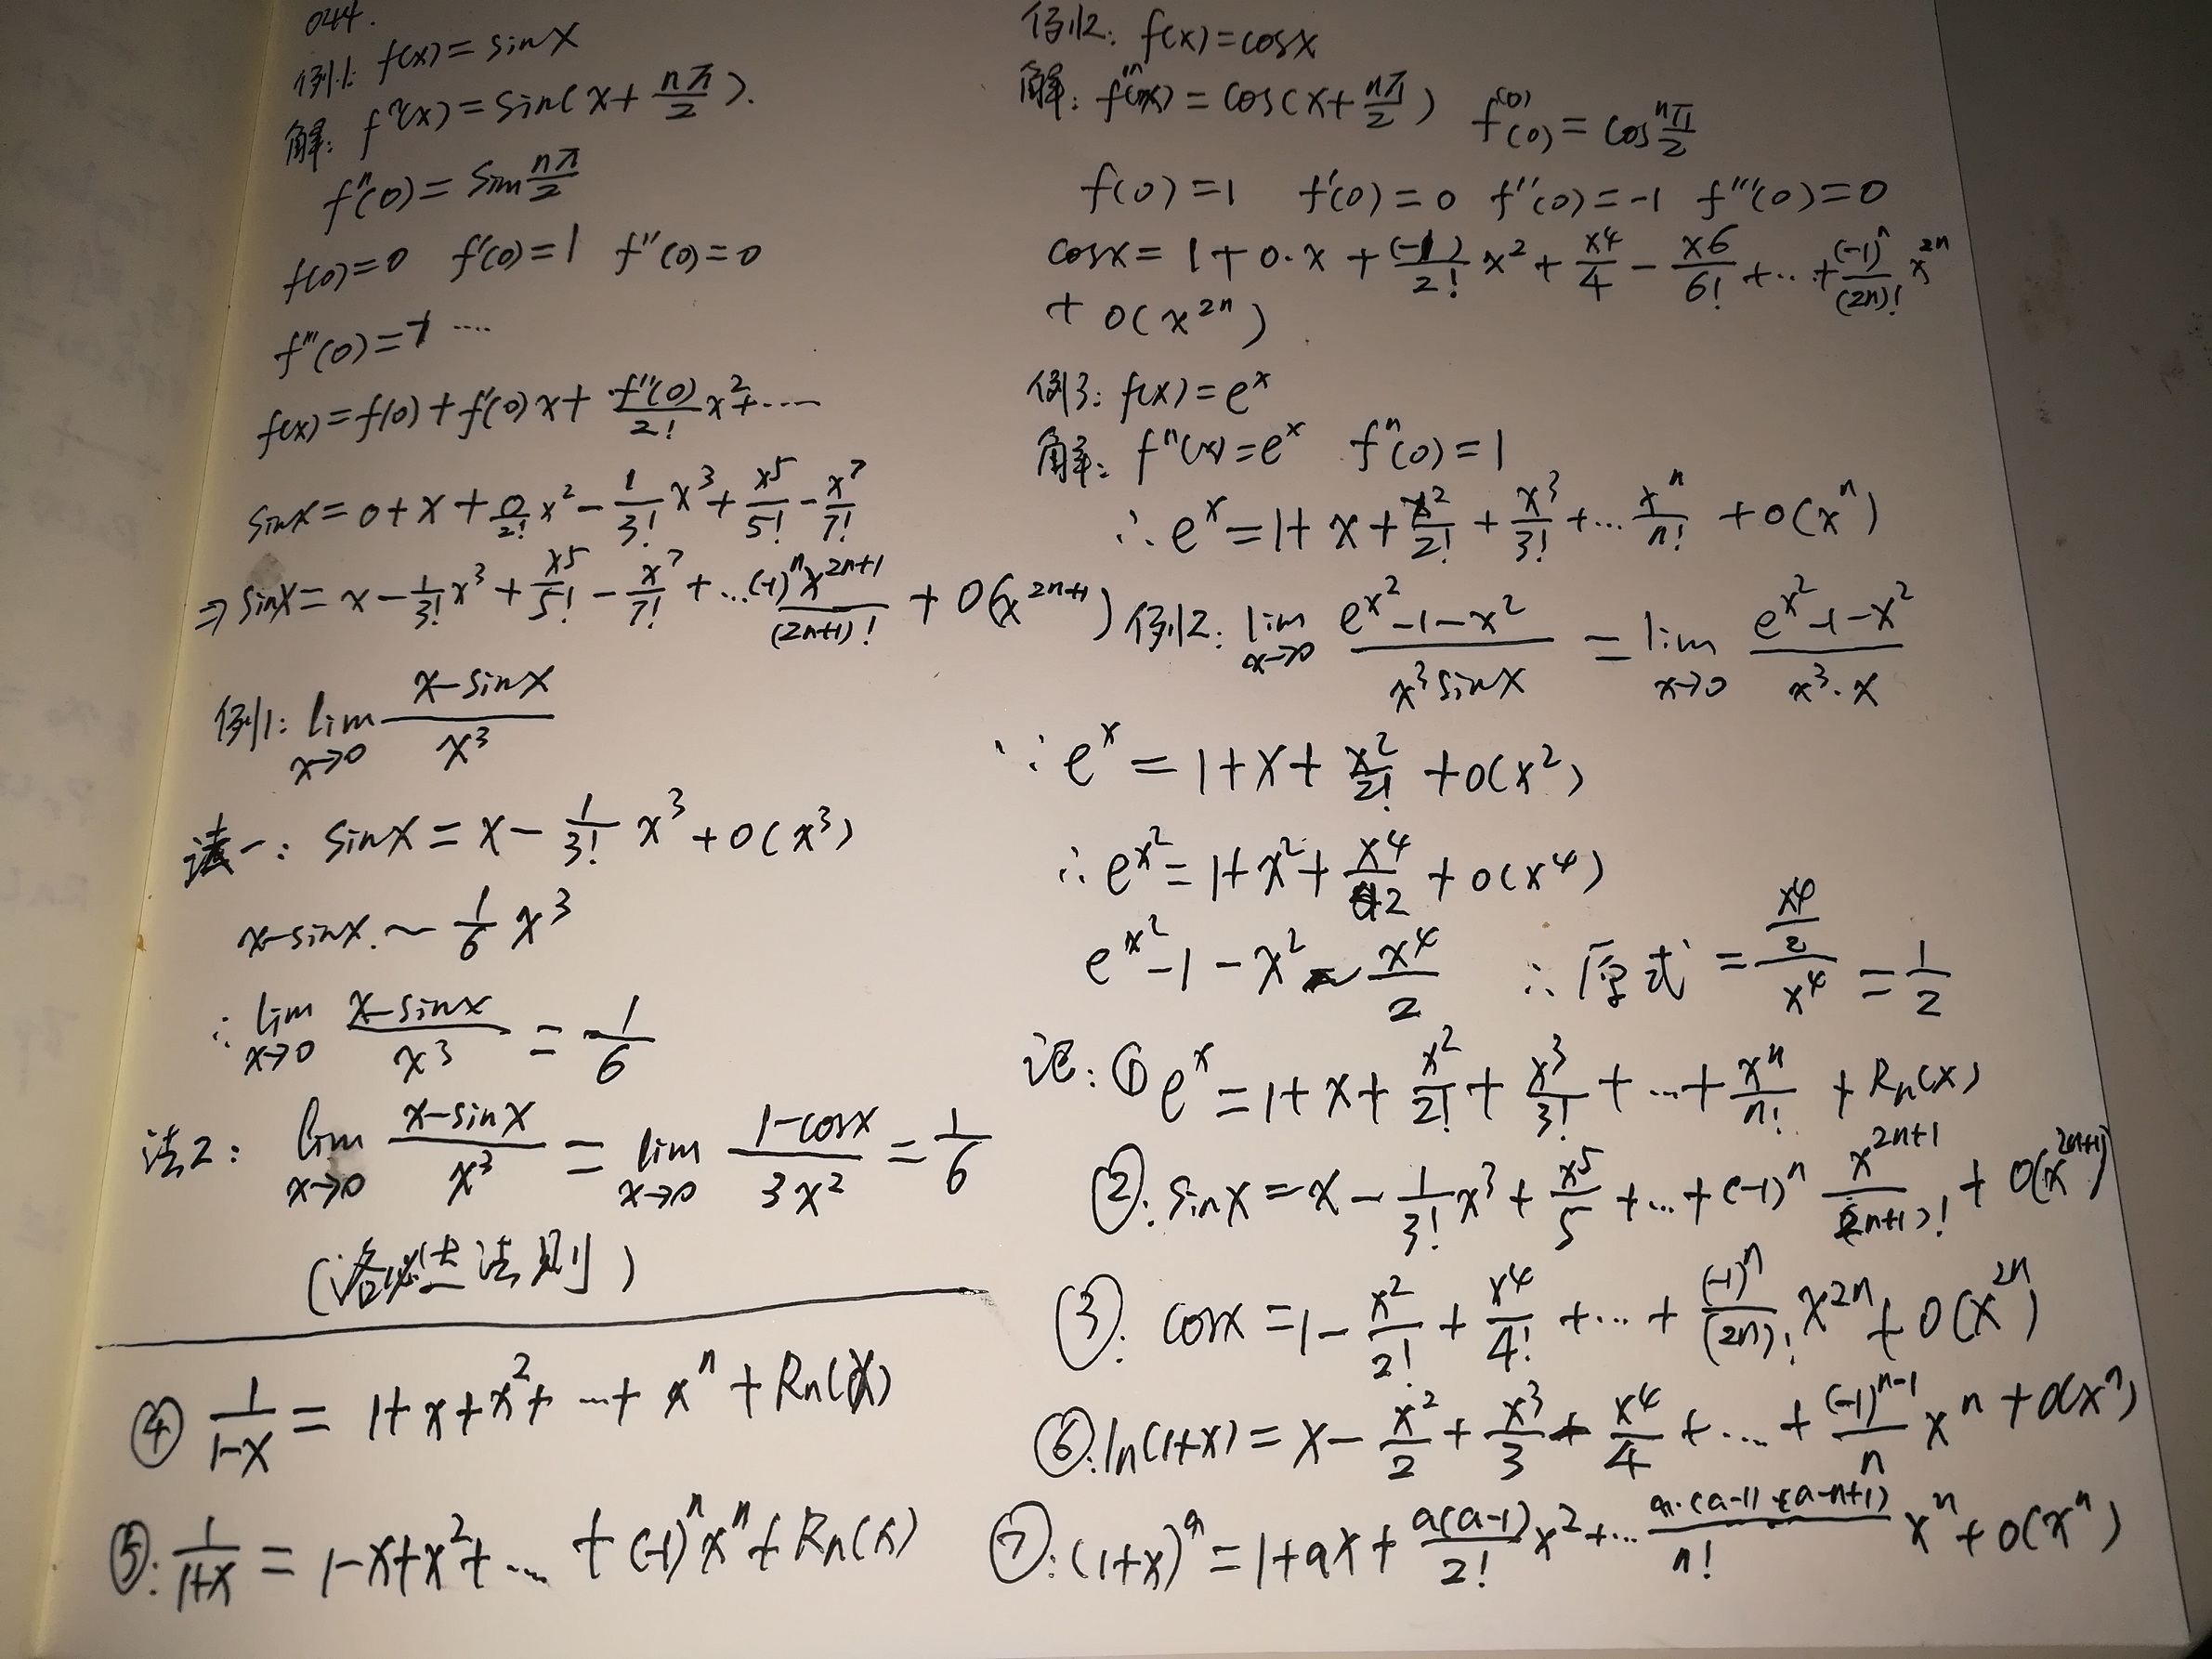 044.
例1: f(x)=sinx
解: fⁿ(x)=sin(x+nπ/2).
fⁿ(0)=sin nπ/2
f(0)=0 f'(0)=1 f''(0)=0
f'''(0)=-1 ....
f(x)=f(0)+f'(0)x+f''(0)/2! x²+....
sinx=0+x+0/2! x²-1/3! x³+x⁵/5!-x⁷/7!
⇒sinx=x-1/3! x³+x⁵/5!-x⁷/7!+...(-1)ⁿx²ⁿ⁺¹/(2n+1)!+o(x²ⁿ⁺¹)
例1: lim x→0 (x-sinx)/x³
法一: sinx=x-1/3! x³+o(x³)
x-sinx.~1/6 x³
∴lim x→0 (x-sinx)/x³=1/6
法2: lim x→0 (x-sinx)/x³=lim x→0 (1-cosx)/3x²=1/6
(洛必达法则)
④ 1/(1-x)=1+x+x²+...+xⁿ+Rn(x)
⑤: 1/(1+x)=1-x+x²+...+(-1)ⁿxⁿ+Rn(x)
例2: f(x)=cosx
解: f⁽ⁿ⁾(x)=cos(x+nπ/2) f⁽⁰⁾(0)=cos nπ/2
f(0)=1 f'(0)=0 f''(0)=-1 f'''(0)=0
cosx=1+0·x+(-1)/2! x²+x⁴/4-x⁶/6!+...+(-1)ⁿ/(2n)! x²ⁿ
+o(x²ⁿ)
例3: f(x)=eˣ
解: fⁿ(x)=eˣ fⁿ(0)=1
∴eˣ=1+x+x²/2!+x³/3!+...xⁿ/n!+o(xⁿ)
例2: lim x→0 (e^x²-1-x²)/x³sinx=lim x→0 (e^x²-1-x²)/x³·x
∵eˣ=1+x+x²/2!+o(x²)
∴e^x²=1+x²+x⁴/2+o(x⁴)
e^x²-1-x²~x⁴/2 ∴原式=(x⁴/2)/x⁴=1/2
记: ①eˣ=1+x+x²/2!+x³/3!+...+xⁿ/n!+Rn(x)
②: sinx=x-1/3! x³+x⁵/5+...+(-1)ⁿ x²ⁿ⁺¹/(2n+1)!+o(x²ⁿ⁺¹)
③: cosx=1-x²/2!+x⁴/4!+...+(-1)ⁿ/(2n)! x²ⁿ+o(x²ⁿ)
⑥: ln(1+x)=x-x²/2+x³/3-x⁴/4+....+(-1)ⁿ⁻¹/n xⁿ+o(xⁿ)
⑦: (1+x)ᵃ=1+ax+a(a-1)/2! x²+...a·(a-1)·(a-n+1)/n! xⁿ+o(xⁿ)